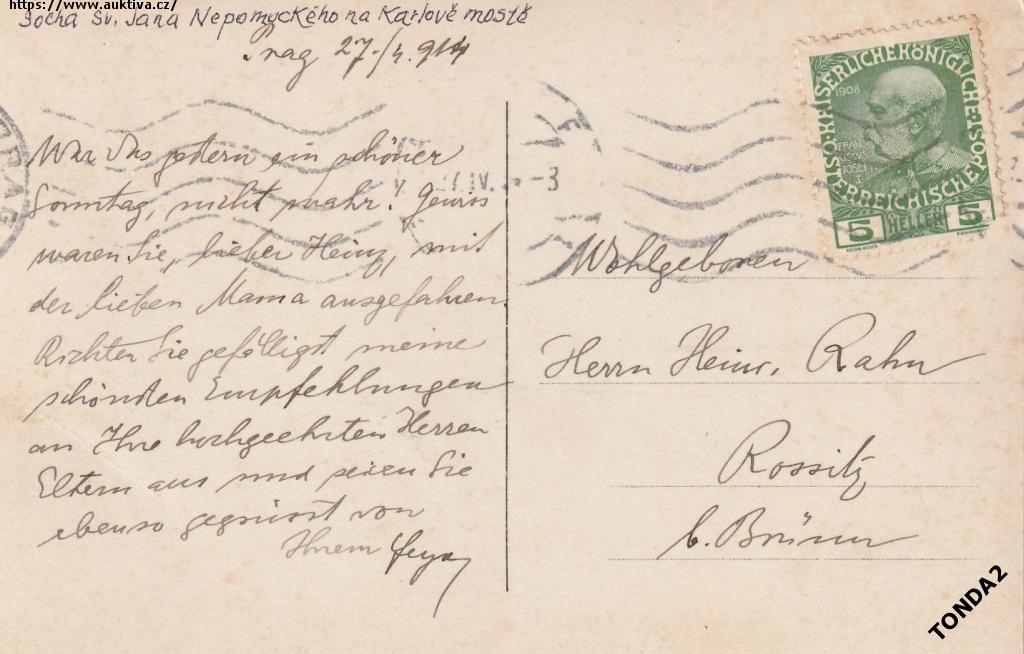 https://www.auktiva.cz/
Socha Sv. Jana Nepomuckého na Karlově mostě
Prag 27./4. 914
War das gestern ein schöner
Sonntag, nicht wahr! Gewiss
waren Sie, lieber Heinz, mit
der lieben Mama ausgefahren.
Richten Sie gefälligst meine
schönsten Empfehlungen
an Ihre hochgeehrten Herren
Eltern aus und seien Sie
ebenso gegrüsst von
Ihrem
PRAG
IV.
3
1908
FRANC
JOSEF
KAISERLICHE KÖNIGLICHE
ÖSTERREICHISCHE
5 HELLER 5
Wohlgeboren
Herrn Heinr. Rahn
Rossitz
b. Brünn
TONDA2